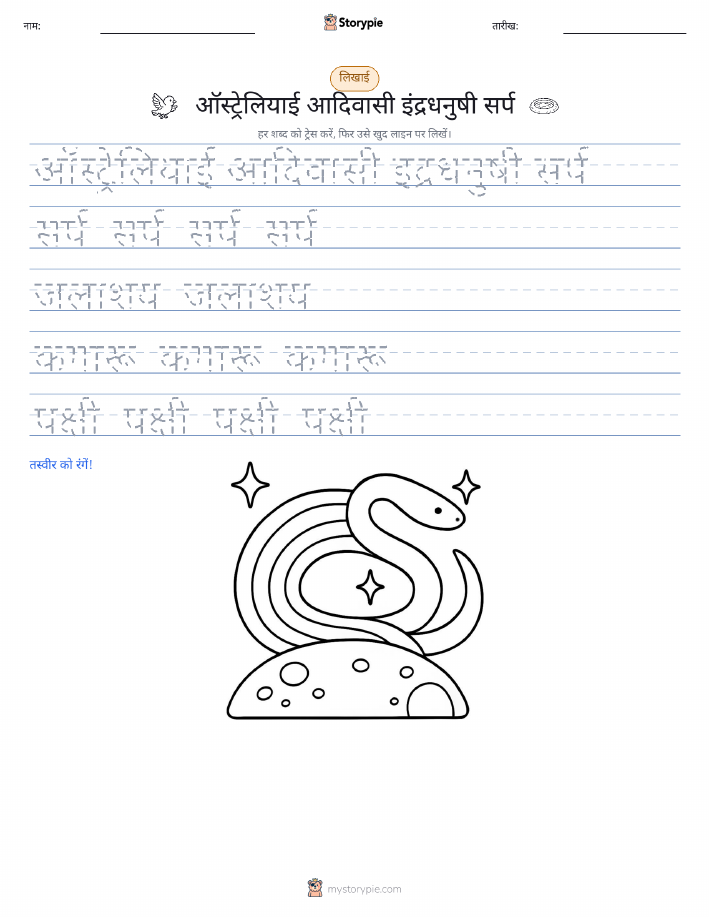 नाम:
Storypie
तारीख:
लिखाई
ऑस्ट्रेलियाई आदिवासी इंद्रधनुषी सर्प
हर शब्द को ट्रेस करें, फिर उसे खुद लाइन पर लिखें।
ऑस्ट्रेलियाई आदिवासी इंद्रधनुषी सर्प
सर्प सर्प सर्प सर्प
जलाशय जलाशय
कंगारू कंगारू कंगारू
पक्षी पक्षी पक्षी पक्षी
तस्वीर को रंगें!
mystorypie.com